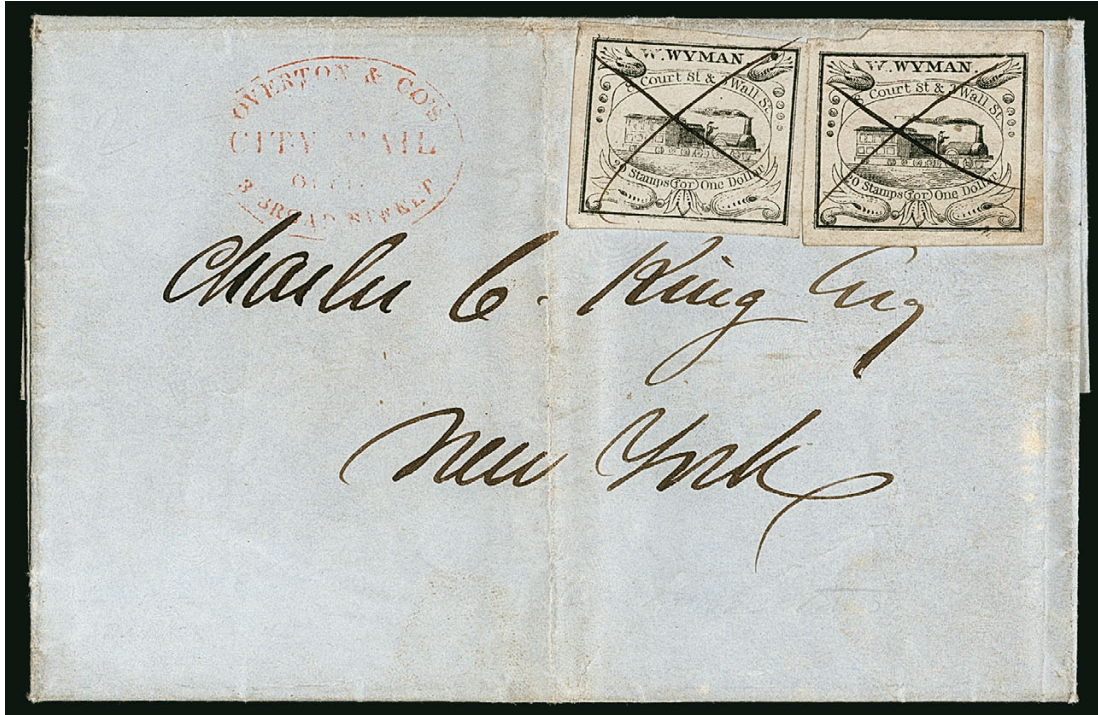 OVERTON & CO'S
CITY MAIL
3 BROAD STREET
W. WYMAN
8 Court St & 3 Wall St
20 Stamps for One Dollar
W. WYMAN
8 Court St & 3 Wall St
20 Stamps for One Dollar
Charles C. King Esq
New York